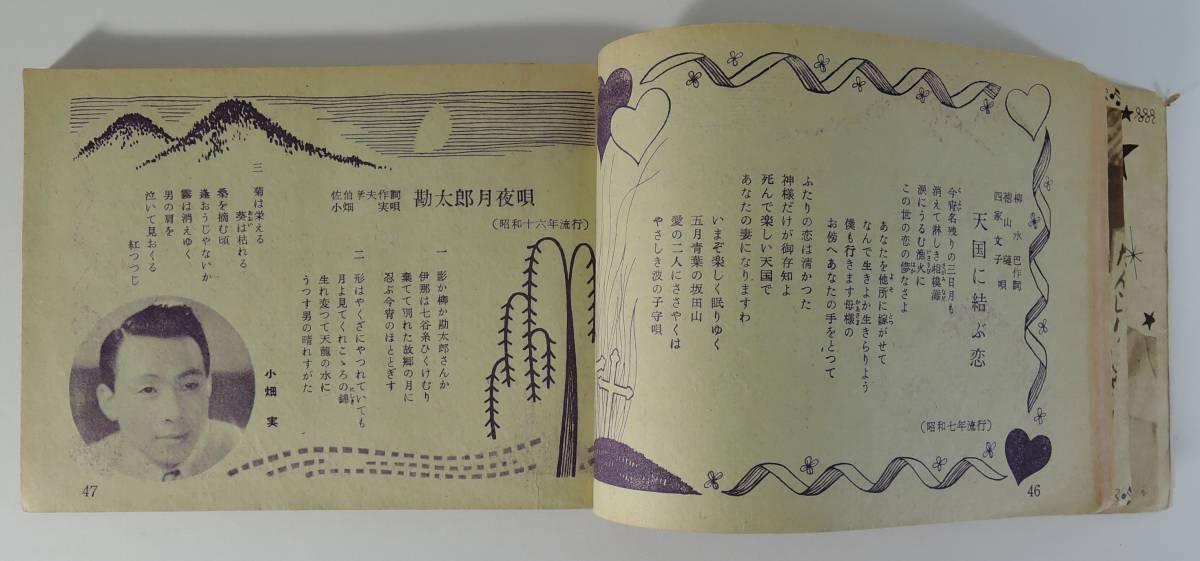 天国に結ぶ恋
柳水巴作詞
徳山璉
四家文子 唄
(昭和七年流行)
今宵名残りの三日月も
消えて淋しき相模灘
涙にうるむ漁火に
この世の恋の儚なさよ
あなたを他所に嫁がせて
なんで生きよか生きらりよう
僕も行きます母様の
お傍へあなたの手をとつて
ふたりの恋は清かつた
神様だけが御存知よ
死んで楽しい天国で
あなたの妻になりますわ
いまぞ楽しく眠りゆく
五月青葉の坂田山
愛の二人にささやくは
やさしき波の子守唄
46
勘太郎月夜唄
佐伯孝夫作詞
小畑実唄
(昭和十六年流行)
一 影か柳か勘太郎さんか
伊那は七谷糸ひくけむり
棄てて別れた故郷の月に
忍ぶ今宵のほととぎす
二 形はやくざにやつれていても
月よ見てくれこゝろの錦
生れ変つて天龍の水に
うつす男の晴れすがた
三 菊は栄える
葵は枯れる
桑を摘む頃
逢おうじゃないか
霧は消えゆく
男の肩を
泣いて見おくる
紅つつじ
小畑実
47